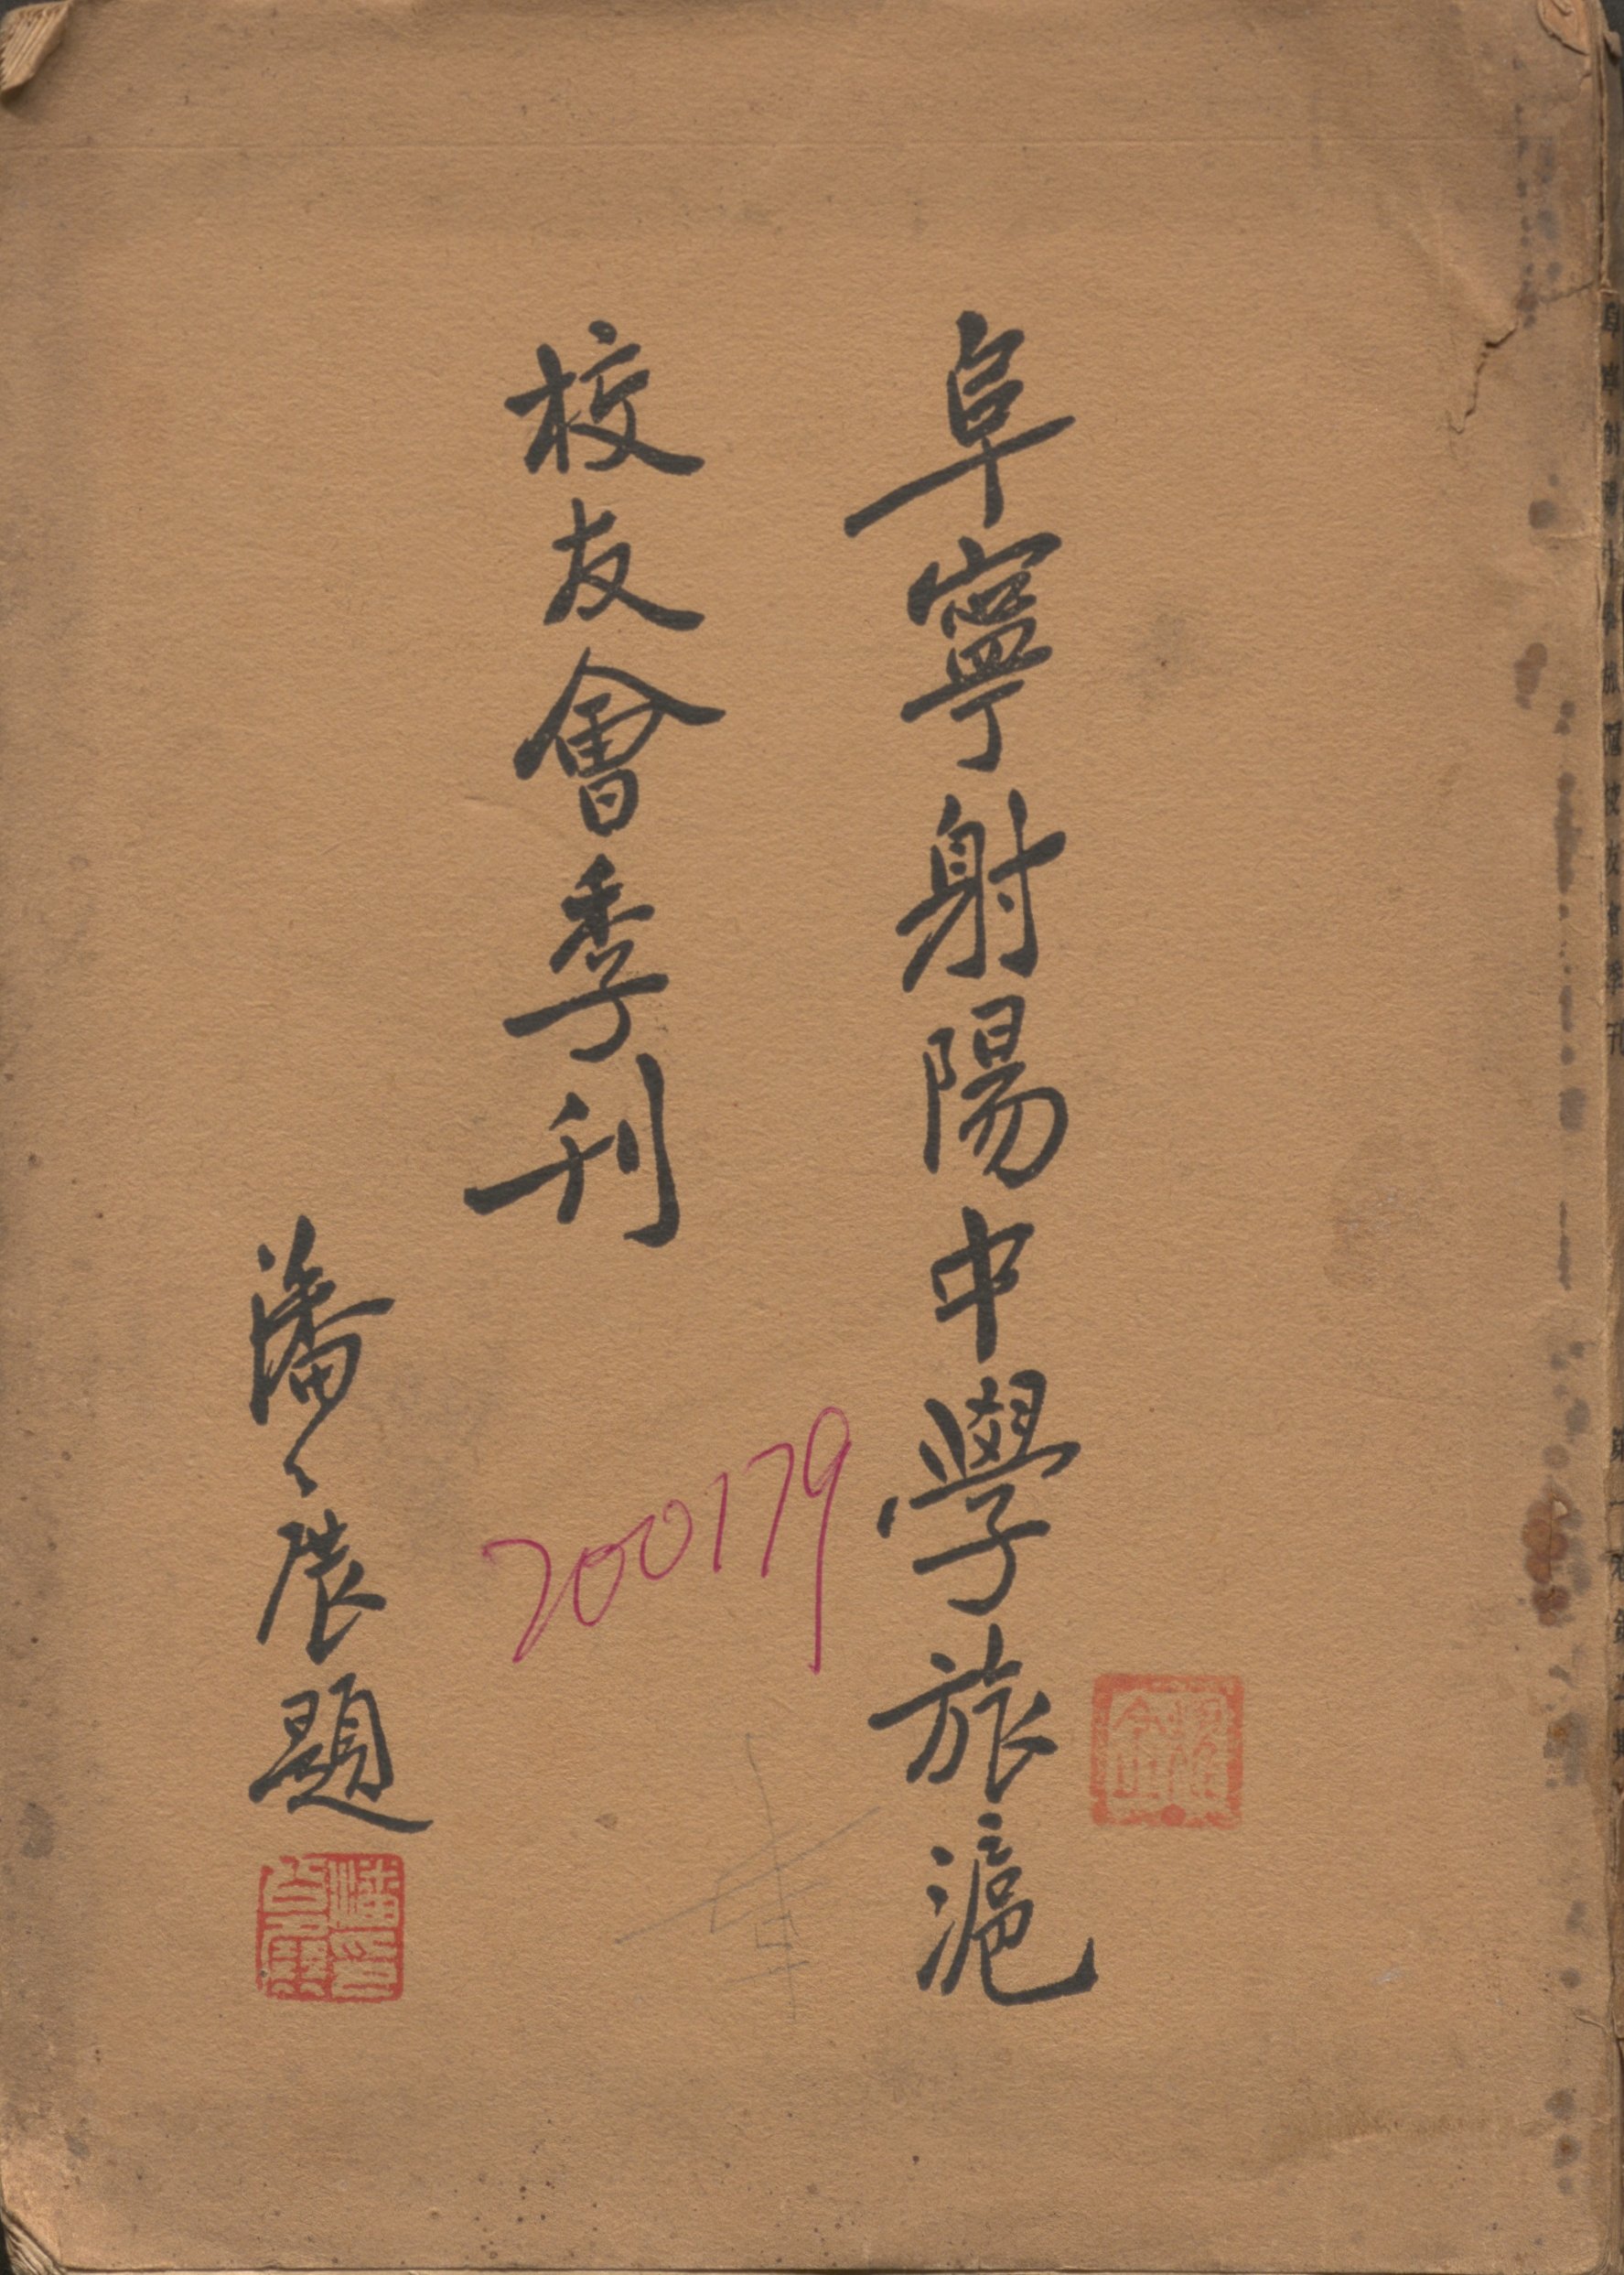 阜寧射陽中學旅滬
校友會季刊
潘公展題
200179